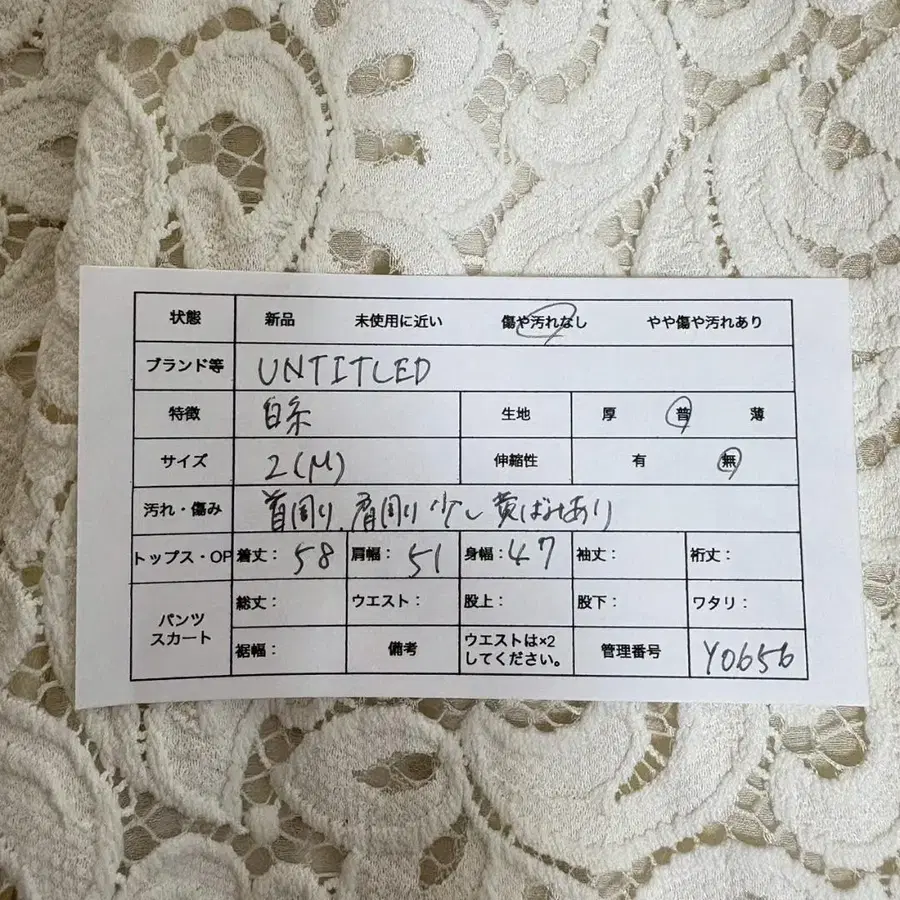 状態 新品 未使用に近い 傷や汚れなし やや傷や汚れあり
ブランド等 UNTITLED
特徴 白系 生地 厚 普 薄
サイズ 2(M) 伸縮性 有 無
汚れ・傷み 首周り、肩周り 少し黄ばみあり
トップス・OP 着丈: 58 肩幅: 51 身幅: 47 袖丈: 裄丈:
パンツ スカート 総丈: ウエスト: 股上: 股下: ワタリ:
裾幅: 備考 ウエストは×2 してください。 管理番号 Y0656